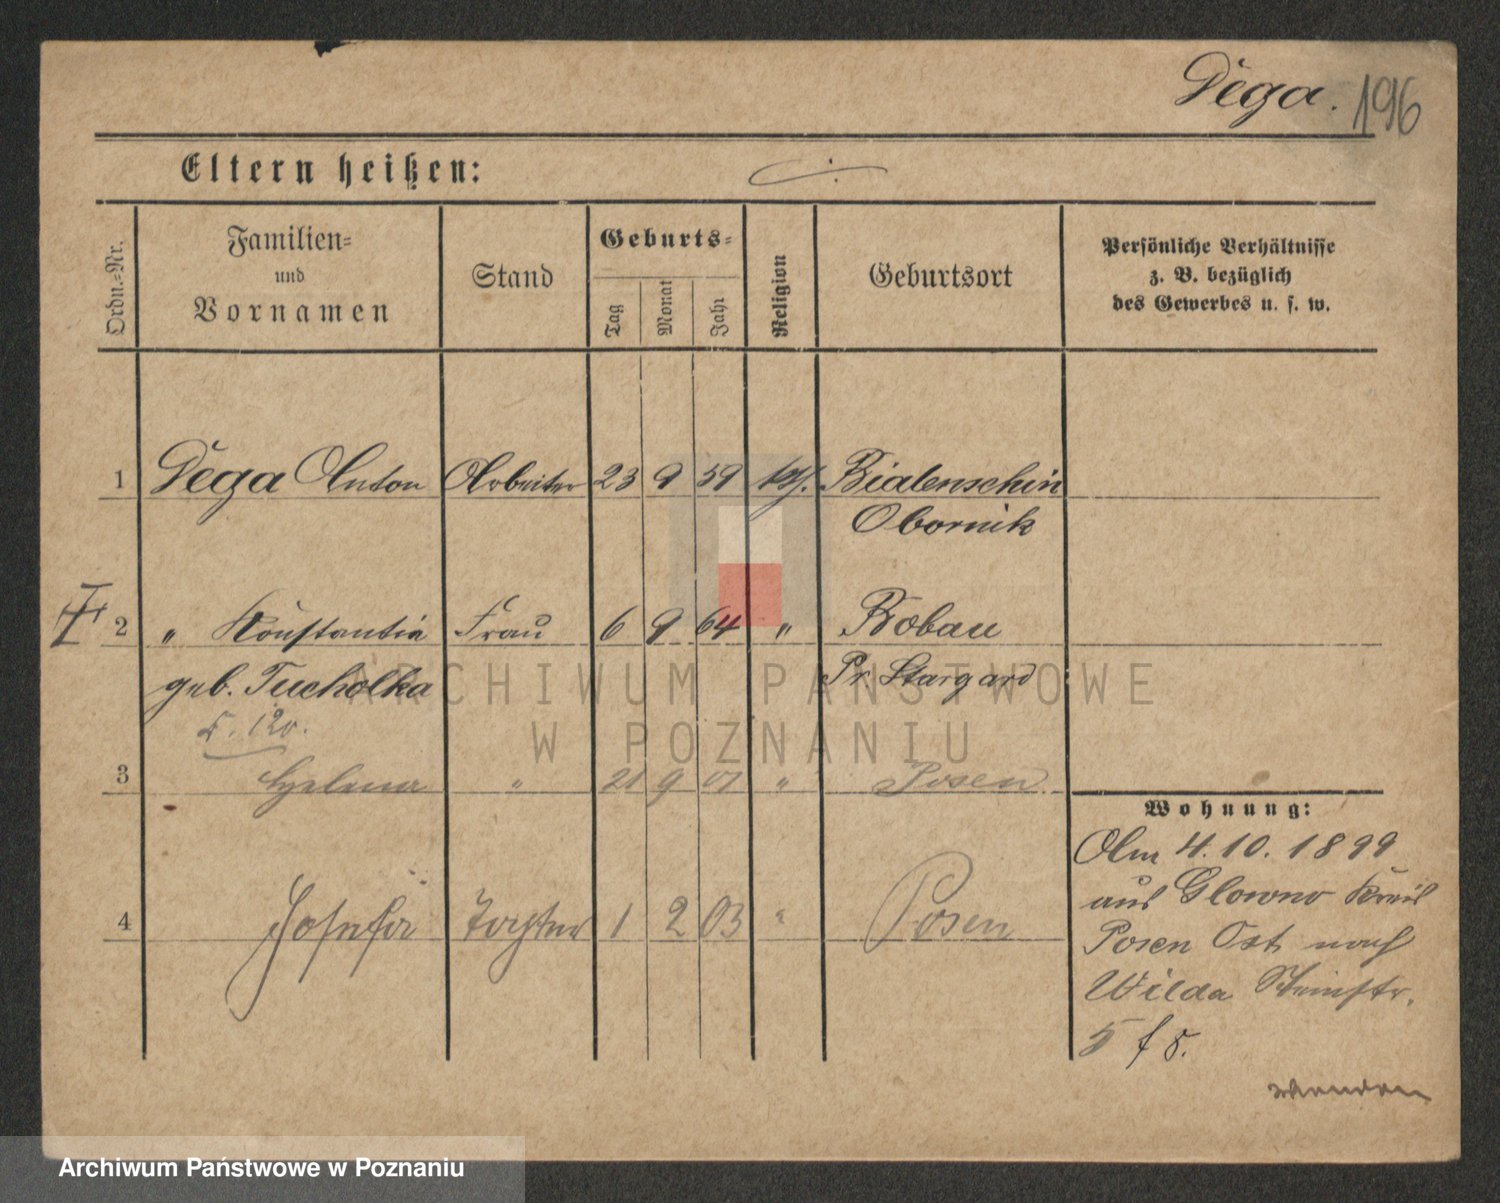 Dega.
196
Eltern heißen:
Ordn.=Nr.
Familien=
und
Vornamen
Stand
Geburts=
Tag
Monat
Jahr
Religion
Geburtsort
Persönliche Verhältnisse
z. B. bezüglich
des Gewerbes u. s. w.
1 Dega Anton Arbeiter 23 9 59 kth. Bialenschin
Obornik
2 " Konstantia Frau 6 9 64 " Bobau
geb. Tucholka Pr. Stargard
3 Helena " 21 9 01 " Posen
4 Josefa Tochter 1 2 03 " Posen
Wohnung:
Am 4.10.1899
aus Glowno Kreis
Posen Ost nach
Wilda
5
wenden
ARCHIWUM PAŃSTWOWE
W POZNANIU
Archiwum Państwowe w Poznaniu